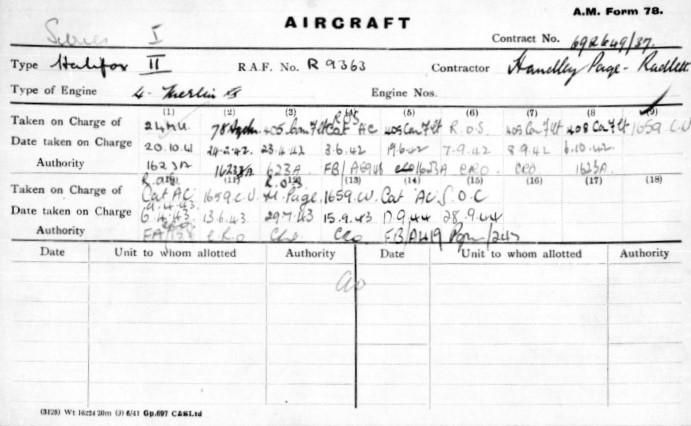 A.M. Form 78.
AIRCRAFT
Series I
Contract No. 692649/37.
Type Halifax II R.A.F. No. R 9363 Contractor Handley Page - Radlett
Type of Engine 4. Merlin Engine Nos.
(1) (2) (3) (4) (5) (6) (7) (8) (9)
R.O.S.
Taken on Charge of 24 M.U. 78 Sqdn 405 Con. Flt Cat AC 408 Con Flt R.O.S. 408 Con Flt 408 Con Flt 1659 C.U
Date taken on Charge 20.10.41 24.2.42. 23.4.42 3.6.42 19.6.42 7-9.42 8.9.42 6.10.42
Authority 1623A 1623A 623A FB/ 1623A CRO CRO 1623A
R.O.S. (11) R.O.S. (13) (14) (15) (16) (17) (18)
Taken on Charge of Cat AC 1659 C.U. H. Page. 1659 C.U. Cat AC S.O.C
9.4.43
Date taken on Charge 6.4.43 13.6.43. 29.7.43 15.9.43 17.9.44 28.9.44
Authority CRO CRO CRO FB/
Date Unit to whom allotted Authority Date Unit to whom allotted Authority
(3128) Wt 16224 20m (3) 6/41 Gp.697 C&SLtd